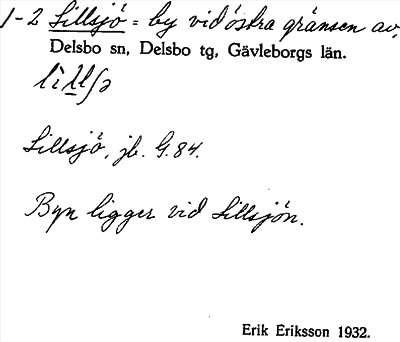 1-2 Lillsjö = by vid östra gränsen av,
Delsbo sn, Delsbo tg, Gävleborgs län.
Lillsjö, jb. G. 84.
Byn ligger vid Lillsjön.
Erik Eriksson 1932.